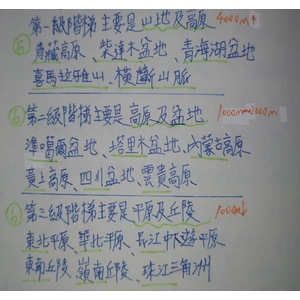 第一級階梯主要是山地及高原 4000m↑
⑤ 青藏高原、柴達木盆地、青海湖盆地
喜馬拉雅山、橫斷山脈
⑥ 第二級階梯主要是高原及盆地 1000m~2000m
準噶爾盆地、塔里木盆地、內蒙古高原
黃土高原、四川盆地、雲貴高原
⑥ 第三級階梯主要是平原及丘陵 1000m↓
東北平原、華北平原、長江中下游平原
東南丘陵、嶺南丘陵、珠江三角洲